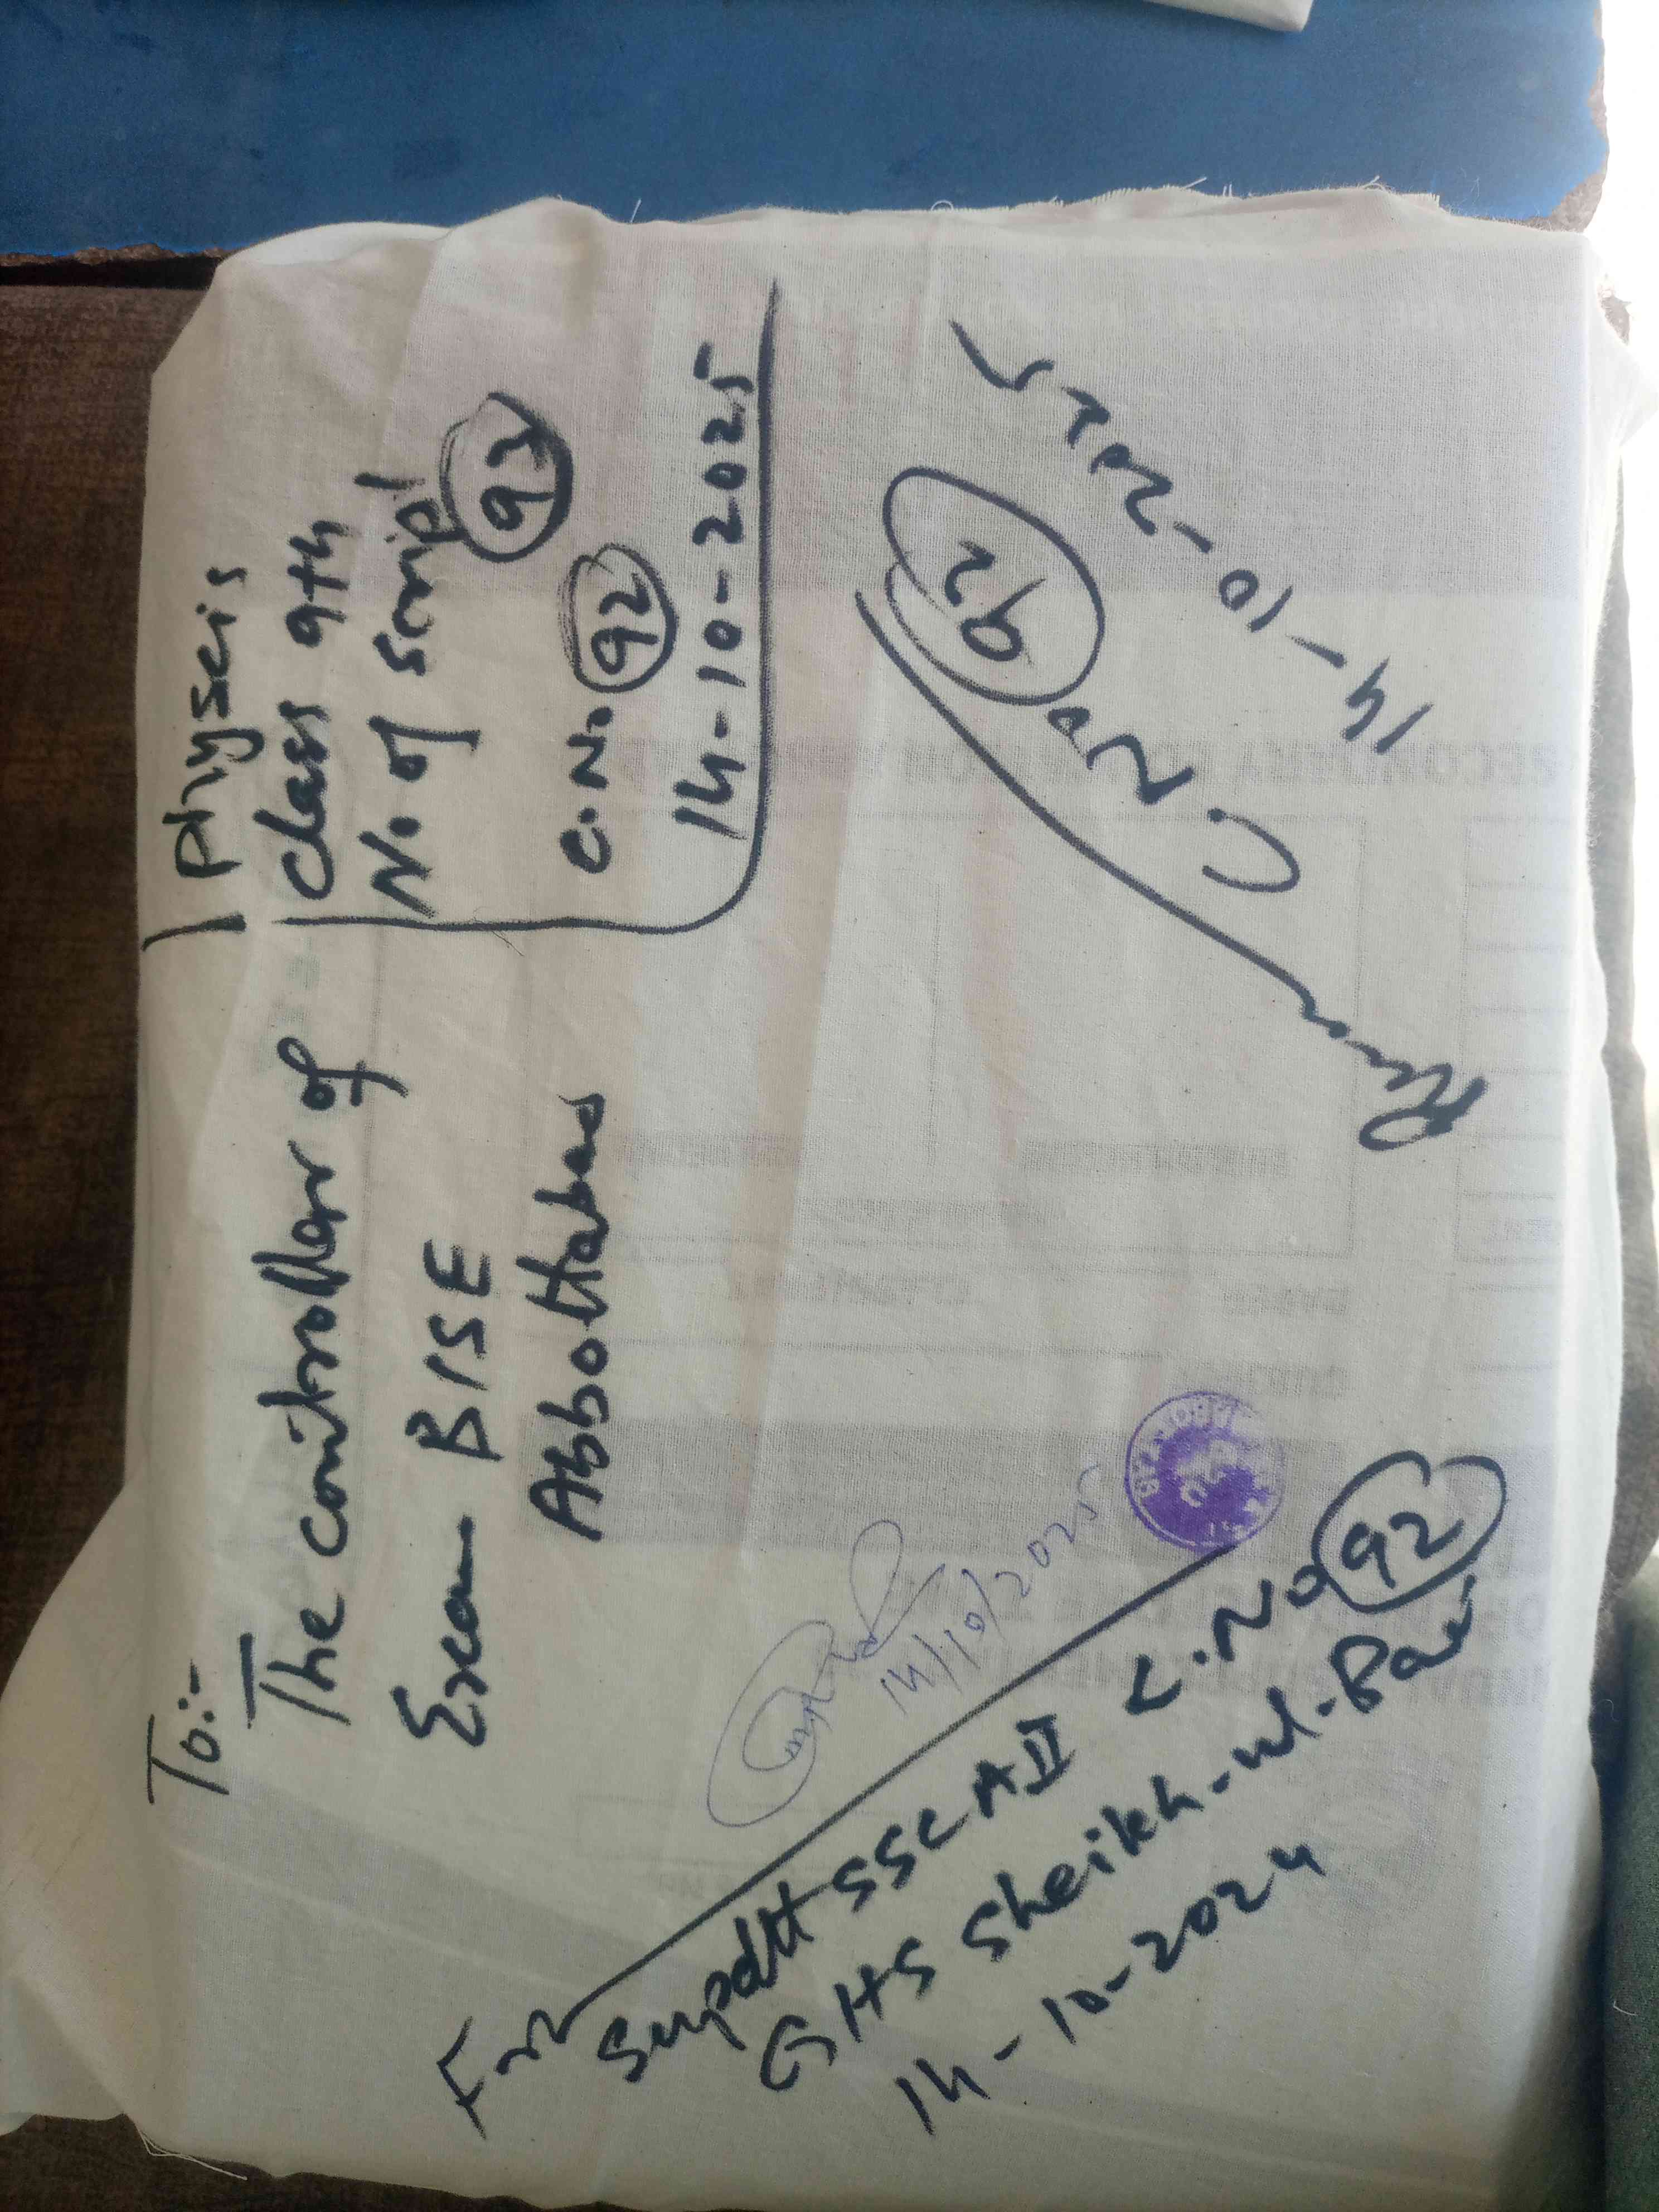 To:-
The controller of
Exam BISE
Abbottabad
Physcis
Class 9th
No of script 93
C.No 92
14-10-2025
From
Supdtt SSC A II C.No 92
GHS Sheikh-ul-Bandi
14-10-2024
14/10/2025
C.No 92
14-10-2025